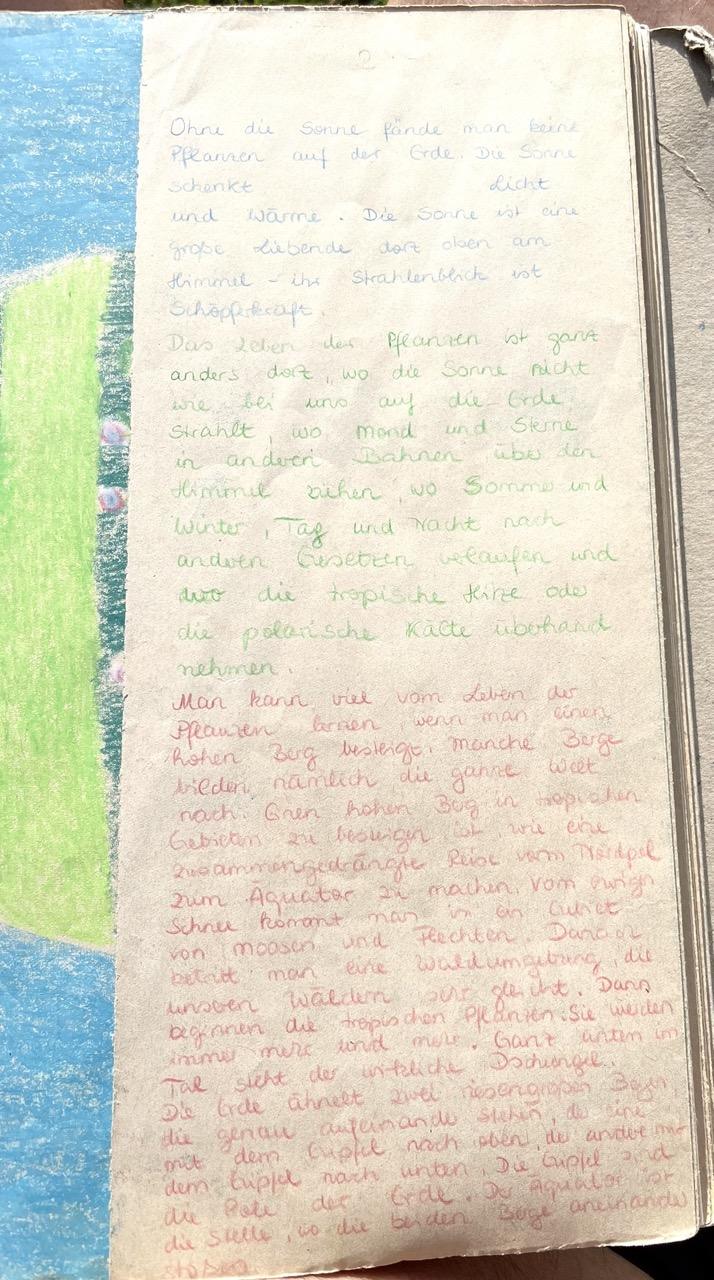 2
Ohne die Sonne fände man keine
Pflanzen auf der Erde. Die Sonne
schenkt Licht
und Wärme. Die Sonne ist eine
große Liebende dort oben am
Himmel - ihr Strahlenblick ist
Schöpferkraft.
Das Leben der Pflanzen ist ganz
anders dort, wo die Sonne nicht
wie bei uns auf die Erde
strahlt, wo Mond und Sterne
in anderen Bahnen über den
Himmel ziehen, wo Sommer und
Winter, Tag und Nacht nach
anderen Gesetzen verlaufen und
wo die tropische Hitze oder
die polarische Kälte überhand
nehmen.
Man kann viel vom Leben der
Pflanzen lernen, wenn man einen
hohen Berg besteigt. Manche Berge
bilden nämlich die ganze Welt
nach. Einen hohen Berg in tropischen
Gebieten zu besteigen ist, wie eine
zusammengedrängte Reise vom Nordpol
zum Äquator zu machen. Vom ewigen
Schnee kommt man in ein Gebiet
von Moosen und Flechten. Danach
betritt man eine Waldumgebung, die
unseren Wäldern sehr gleicht. Dann
beginnen die tropischen Pflanzen. Sie werden
immer mehr und mehr. Ganz unten im
Tal steht der wirkliche Dschungel.
Die Erde ähnelt zwei riesengroßen Bergen
die genau aufeinander stehen, der eine
mit dem Gipfel nach oben, der andere mit
dem Gipfel nach unten. Die Gipfel sind
die Pole der Erde. Der Äquator ist
die Stelle, wo die beiden Berge aneinander
stoßen.